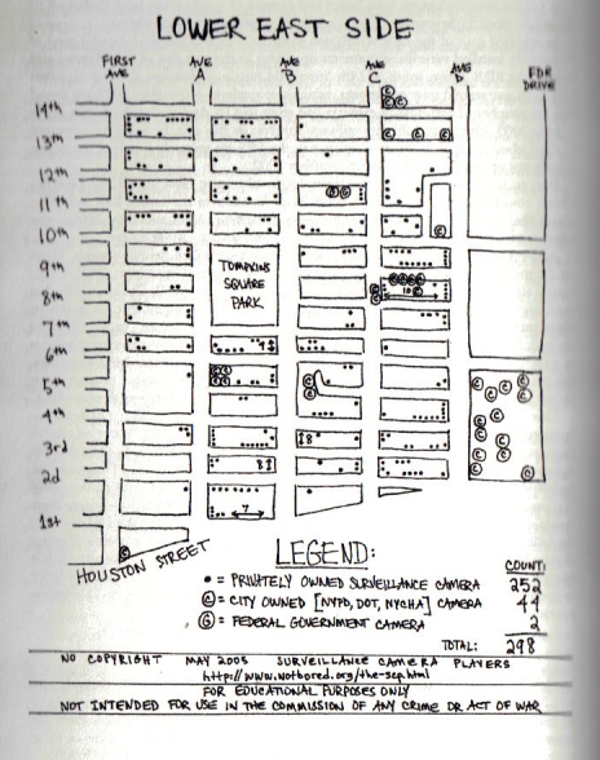 LOWER EAST SIDE
FIRST AVE
AVE A
AVE B
AVE C
AVE D
FDR DRIVE
14th
13th
12th
11th
10th
9th
8th
7th
6th
5th
4th
3rd
2d
1st
TOMPKINS
SQUARE
PARK
HOUSTON STREET
LEGEND:
COUNT:
• = PRIVATELY OWNED SURVEILLANCE CAMERA 252
Ⓒ = CITY OWNED [NYPD, DOT, NYCHA] CAMERA 44
Ⓖ = FEDERAL GOVERNMENT CAMERA 2
TOTAL: 298
NO COPYRIGHT MAY 2005 SURVEILLANCE CAMERA PLAYERS
http://www.notbored.org/the-scp.html
FOR EDUCATIONAL PURPOSES ONLY
NOT INTENDED FOR USE IN THE COMMISSION OF ANY CRIME OR ACT OF WAR